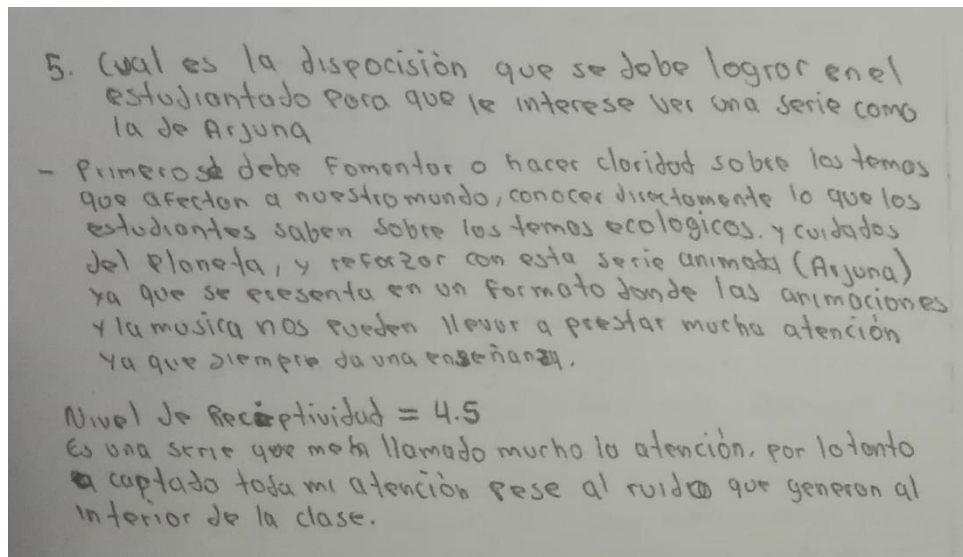 5. Cual es la dispocisión que se debe lograr en el
estudiantado para que le interese ver una serie como
la de Arjuna
- Primero se debe fomentar o hacer claridad sobre los temas
que afectan a nuestro mundo, conocer directamente lo que los
estudiantes saben sobre los temas ecologicos. y cuidados
del planeta, y reforzar con esta serie animada (Arjuna)
ya que se presenta en un formato donde las animaciones
y la musica nos pueden llevar a prestar mucha atención
ya que siempre da una enseñanza.
Nivel de Receptividad = 4.5
Es una serie que me ha llamado mucho la atención, por lo tanto
a captado toda mi atención pese al ruido que generan al
interior de la clase.